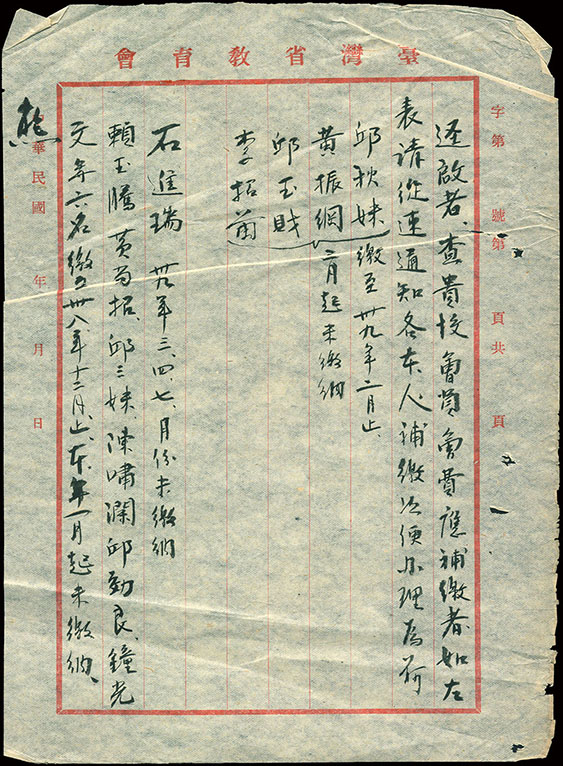 臺灣省教育會
字第 號第 頁共 頁
逕啟者、查貴校會員會費應補繳者如左
表請從速通知各本人補繳以便办理為荷
邱秋妹 繳至卅九年二月止、
黃振綱 三月起未繳納
邱玉
李招
石進瑞 卅九年三、四、七、月份未繳納
賴玉騰、黃 招、邱三妹、陳嘯瀾、邱勤良、鐘光
文等六名繳至卅八年十二月止、本年一月起未繳納、
華民國 年 月 日